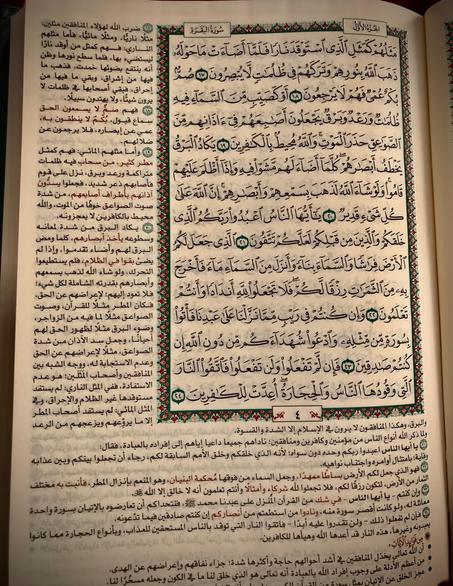 الجزء الأول
سورة البقرة
مَثَلُهُمْ كَمَثَلِ ٱلَّذِى ٱسْتَوْقَدَ نَارًا فَلَمَّآ أَضَآءَتْ مَا حَوْلَهُۥ
ذَهَبَ ٱللَّهُ بِنُورِهِمْ وَتَرَكَهُمْ فِى ظُلُمَٰتٍ لَّا يُبْصِرُونَ ١٧ صُمٌّۢ
بُكْمٌ عُمْىٌ فَهُمْ لَا يَرْجِعُونَ ١٨ أَوْ كَصَيِّبٍ مِّنَ ٱلسَّمَآءِ فِيهِ
ظُلُمَٰتٌ وَرَعْدٌ وَبَرْقٌ يَجْعَلُونَ أَصَٰبِعَهُمْ فِىٓ ءَاذَانِهِم مِّنَ
ٱلصَّوَٰعِقِ حَذَرَ ٱلْمَوْتِ وَٱللَّهُ مُحِيطٌۢ بِٱلْكَٰفِرِينَ ١٩ يَكَادُ ٱلْبَرْقُ
يَخْطَفُ أَبْصَٰرَهُمْ كُلَّمَآ أَضَآءَ لَهُم مَّشَوْا۟ فِيهِ وَإِذَآ أَظْلَمَ عَلَيْهِمْ
قَامُوا۟ وَلَوْ شَآءَ ٱللَّهُ لَذَهَبَ بِسَمْعِهِمْ وَأَبْصَٰرِهِمْ إِنَّ ٱللَّهَ عَلَىٰ
كُلِّ شَىْءٍ قَدِيرٌ ٢٠ يَٰٓأَيُّهَا ٱلنَّاسُ ٱعْبُدُوا۟ رَبَّكُمُ ٱلَّذِى
خَلَقَكُمْ وَٱلَّذِينَ مِن قَبْلِكُمْ لَعَلَّكُمْ تَتَّقُونَ ٢١ ٱلَّذِى جَعَلَ لَكُمُ
ٱلْأَرْضَ فِرَٰشًا وَٱلسَّمَآءَ بِنَآءً وَأَنزَلَ مِنَ ٱلسَّمَآءِ مَآءً فَأَخْرَجَ
بِهِۦ مِنَ ٱلثَّمَرَٰتِ رِزْقًا لَّكُمْ فَلَا تَجْعَلُوا۟ لِلَّهِ أَندَادًا وَأَنتُمْ
تَعْلَمُونَ ٢٢ وَإِن كُنتُمْ فِى رَيْبٍ مِّمَّا نَزَّلْنَا عَلَىٰ عَبْدِنَا فَأْتُوا۟
بِسُورَةٍ مِّن مِّثْلِهِۦ وَٱدْعُوا۟ شُهَدَآءَكُم مِّن دُونِ ٱللَّهِ إِن
كُنتُمْ صَٰدِقِينَ ٢٣ فَإِن لَّمْ تَفْعَلُوا۟ وَلَن تَفْعَلُوا۟ فَٱتَّقُوا۟ ٱلنَّارَ
ٱلَّتِى وَقُودُهَا ٱلنَّاسُ وَٱلْحِجَارَةُ أُعِدَّتْ لِلْكَٰفِرِينَ ٢٤
٤
ضرب الله لهؤلاء المنافقين مثلين:
مثلًا ناريًّا، ومثلًا مائيًّا، فأما مثلهم
الناري: فهم كمثل من أوقد نارًا
ليستضيء بها، فلما سطع نورها وظن
أنه ينتفع بضوئها خمدت، فذهب ما
فيها من إشراق، وبقي ما فيها من
إحراق، فبقي أصحابها في ظلمات لا
يرون شيئًا، ولا يهتدون سبيلًا.
فهم صمٌّ لا يسمعون الحق
سماع قبول، بُكْمٌ لا ينطقون به،
عمي عن إبصاره، فلا يرجعون عن
ضلالهم.
وأما مثلهم المائي: فهم كمثل
مطر كثير، من سحاب فيه ظلمات
متراكمة ورعد وبرق، نزل على قوم
فأصابهم ذعر شديد، فجعلوا يسدُّون
آذانهم بأطراف أصابعهم، من شدة
صوت الصواعق خوفًا من الموت، والله
محيط بالكافرين لا يعجزونه.
يكاد البرق من شدة لمعانه
وسطوعه يأخذ أبصارهم، كلما ومض
البرق لهم وأضاء تقدموا، وإذا لم
يضئ بقوا في الظلام، فلم يستطيعوا
التحرك، ولو شاء الله لذهب بسمعهم
وأبصارهم بقدرته الشاملة لكل شيء؛
فلا تعود إليهم؛ لإعراضهم عن الحق.
فكان المطر مثلًا للقرآن، وصوت
الصواعق مثلًا لما فيه من الزواجر،
وضوء البرق مثلًا لظهور الحق لهم
أحيانًا، وجعل سد الآذان من شدة
الصواعق، مثلًا لإعراضهم عن الحق
وعدم الاستجابة له، ووجه الشبه بين
المنافقين وأصحاب المثلين: هو عدم
الاستفادة، ففي المثل الناري: لم يستفد
مستوقدها غير الظلام والإحراق، وفي
المثل المائي: لم يستفد أصحاب المطر
إلا ما يروّعهم ويزعجهم من الرعد
والبرق، وهكذا المنافقون لا يرون في الإسلام إلا الشدة والقسوة.
ولما ذكر الله أنواع الناس من مؤمنين وكافرين ومنافقين؛ ناداهم جميعًا داعيًا إياهم إلى إفراده بالعبادة، فقال:
يا أيها الناس اعبدوا ربكم وحده دون سواه؛ لأنه الذي خلقكم وخلق الأمم السابقة لكم، رجاء أن تجعلوا بينكم وبين عذابه
وقاية؛ بامتثال أوامره واجتناب نواهيه.
فهو الذي جعل لكم الأرض بساطًا ممهدًا، وجعل السماء من فوقها مُحكمة البنيان، وهو المنعم بإنزال المطر، فأنبت به مختلف
الثمار من الأرض، لتكون رزقًا لكم، فلا تجعلوا لله شركاء وأمثالًا وأنتم تعلمون أنه لا خالق إلا الله
وإن كنتم - يا أيها الناس - في شك من القرآن المنزل على عبدنا محمد ﷺ، فنتحداكم أن تعارضوه بالإتيان بسورة واحدة
مماثلة له، ولو كانت أقصر سورة منه، ونادوا من استطعتم من أنصاركم إن كنتم صادقين فيما تدَّعونه.
فإن لم تفعلوا ذلك - ولن تقدروا عليه أبدًا - فاتقوا النار التي توقد بالناس المستحقين للعذاب، وبأنواع الحجارة مما كانوا
يعبدونه وغيرها، هذه النار قد أعدها الله وهيأها للكافرين.
أن الله تعالى يخذل المنافقين في أشد أحوالهم حاجة وأكثرها شدة؛ جزاء نفاقهم وإعراضهم عن الهدى.
من أعظم الأدلة على وجوب إفراد الله بالعبادة أنه تعالى هو الذي خلق لنا ما في الكون وجعله مسخَّرًا لنا.